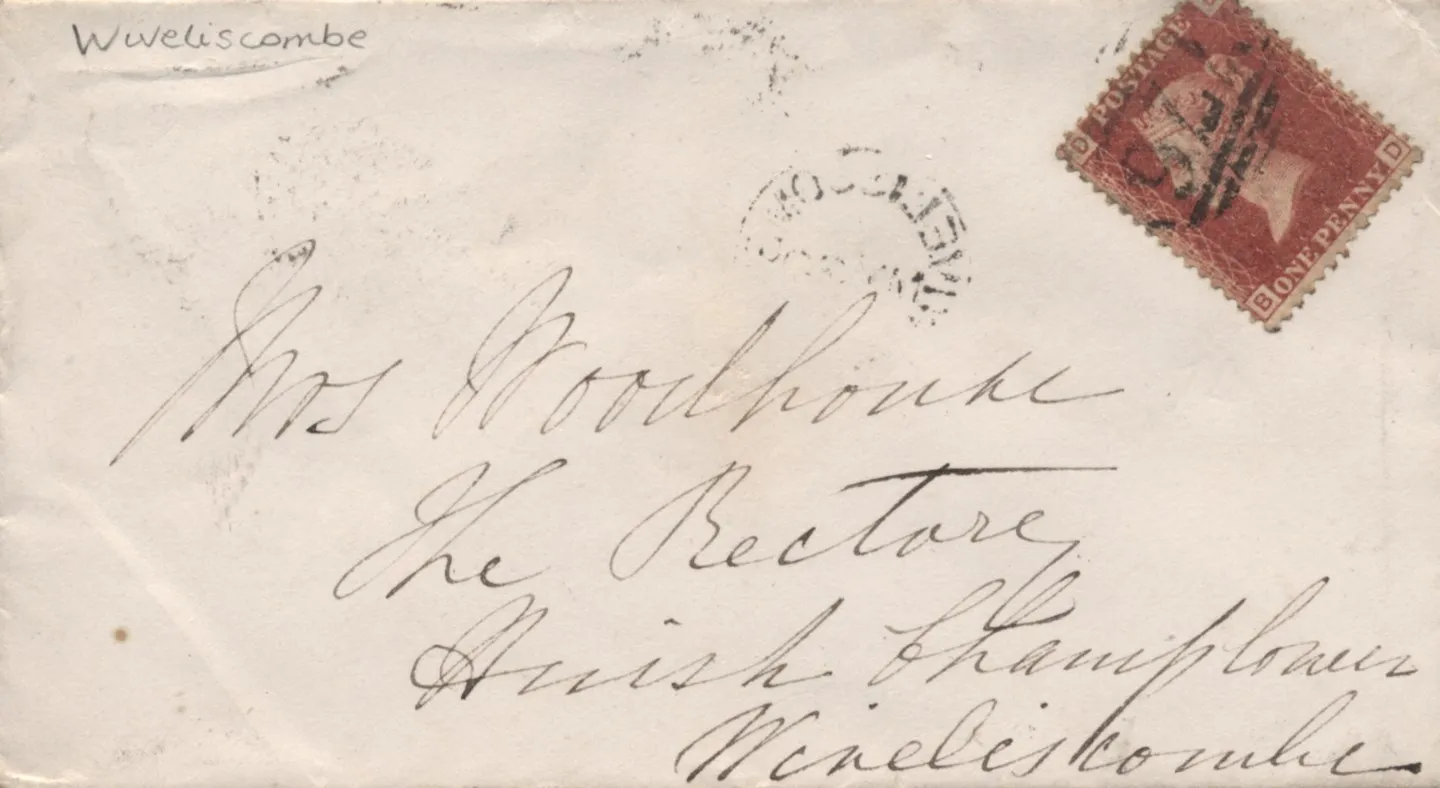 Wiveliscombe
POSTAGE
D D
B
ONE PENNY
Mrs Woodhouse
The Rectory
Huish Champflower
Wiveliscombe